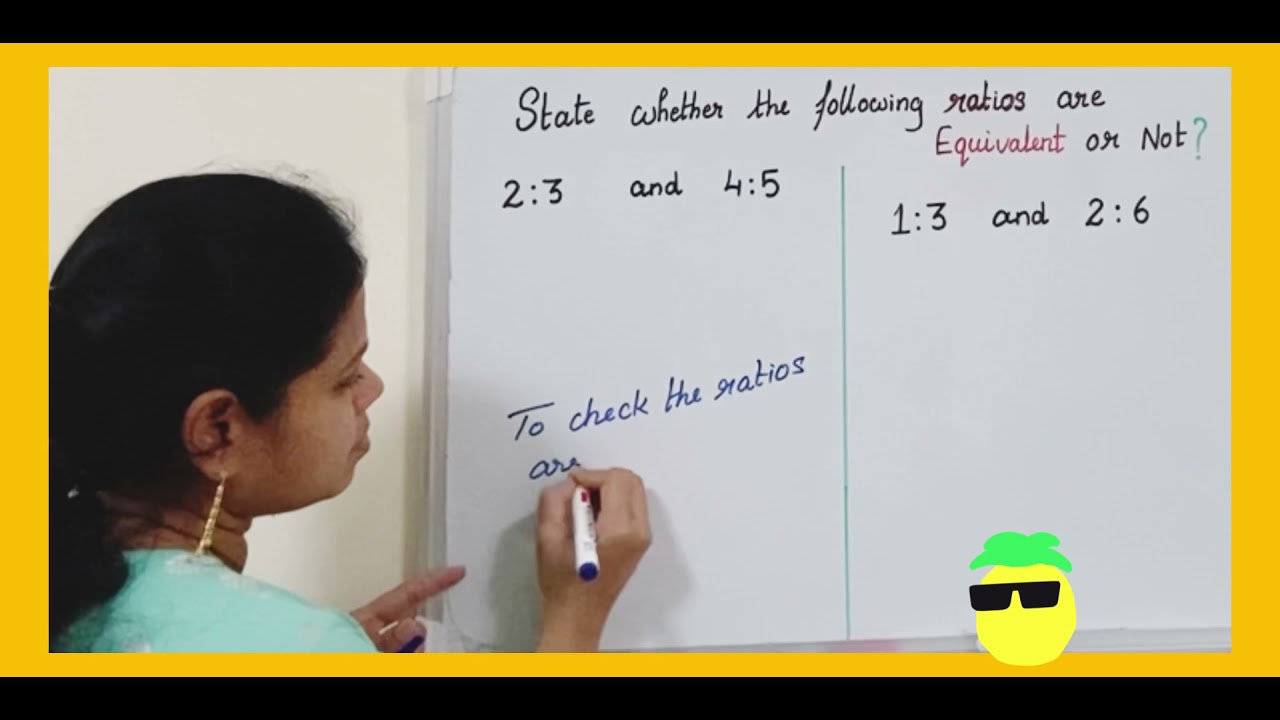 State whether the following ratios are
Equivalent or Not?
2:3 and 4:5
1:3 and 2:6
To check the ratios
are